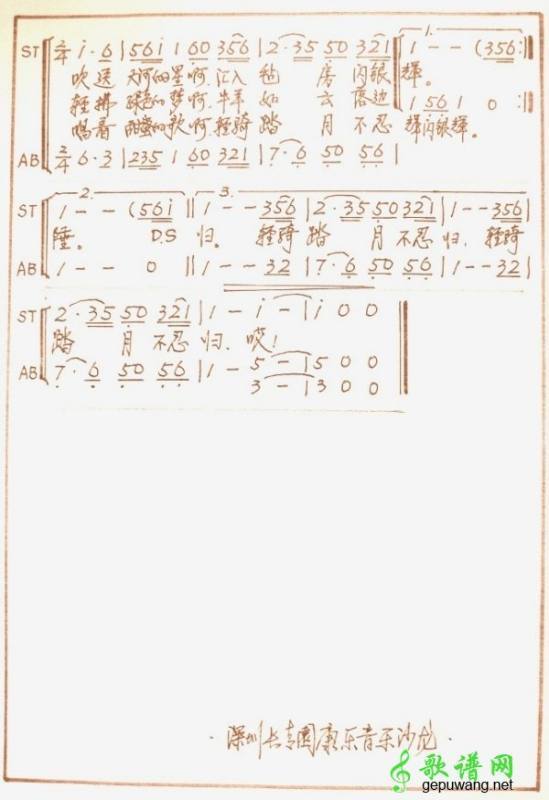 1.
ST 2/4 i·6 | 56i i 60 356 | 2·35 50 321 | 1 - - (356 :||
吹送 天河的星啊,汇入 毡 房 闪银 辉。
轻拂 绿色的梦啊,牛羊 如 云 落边
1 56 1 0 :||
唱着 甜蜜的歌啊,轻骑 踏 月 不忍 辉闪银辉。
AB 2/4 6·3 | 235 1 60 321 | 7·6 50 56 |
2. 3.
ST 1 - - (56i || 1 - - 356 | 2·35 50 321 | 1 - - 356 |
陲。 D.S 归。 轻骑 踏 月 不忍 归, 轻骑
AB 1 - - 0 || 1 - - 32 | 7·6 50 56 | 1 - - 32 |
ST 2·35 50 321 | 1 - i - | i 0 0 ||
踏 月 不忍 归, 哎!
AB 7·6 50 56 | 1 - 5 - | 5 0 0
3 - | 3 0 0
·深圳 园康乐音乐沙龙·
歌谱网
gepuwang.net